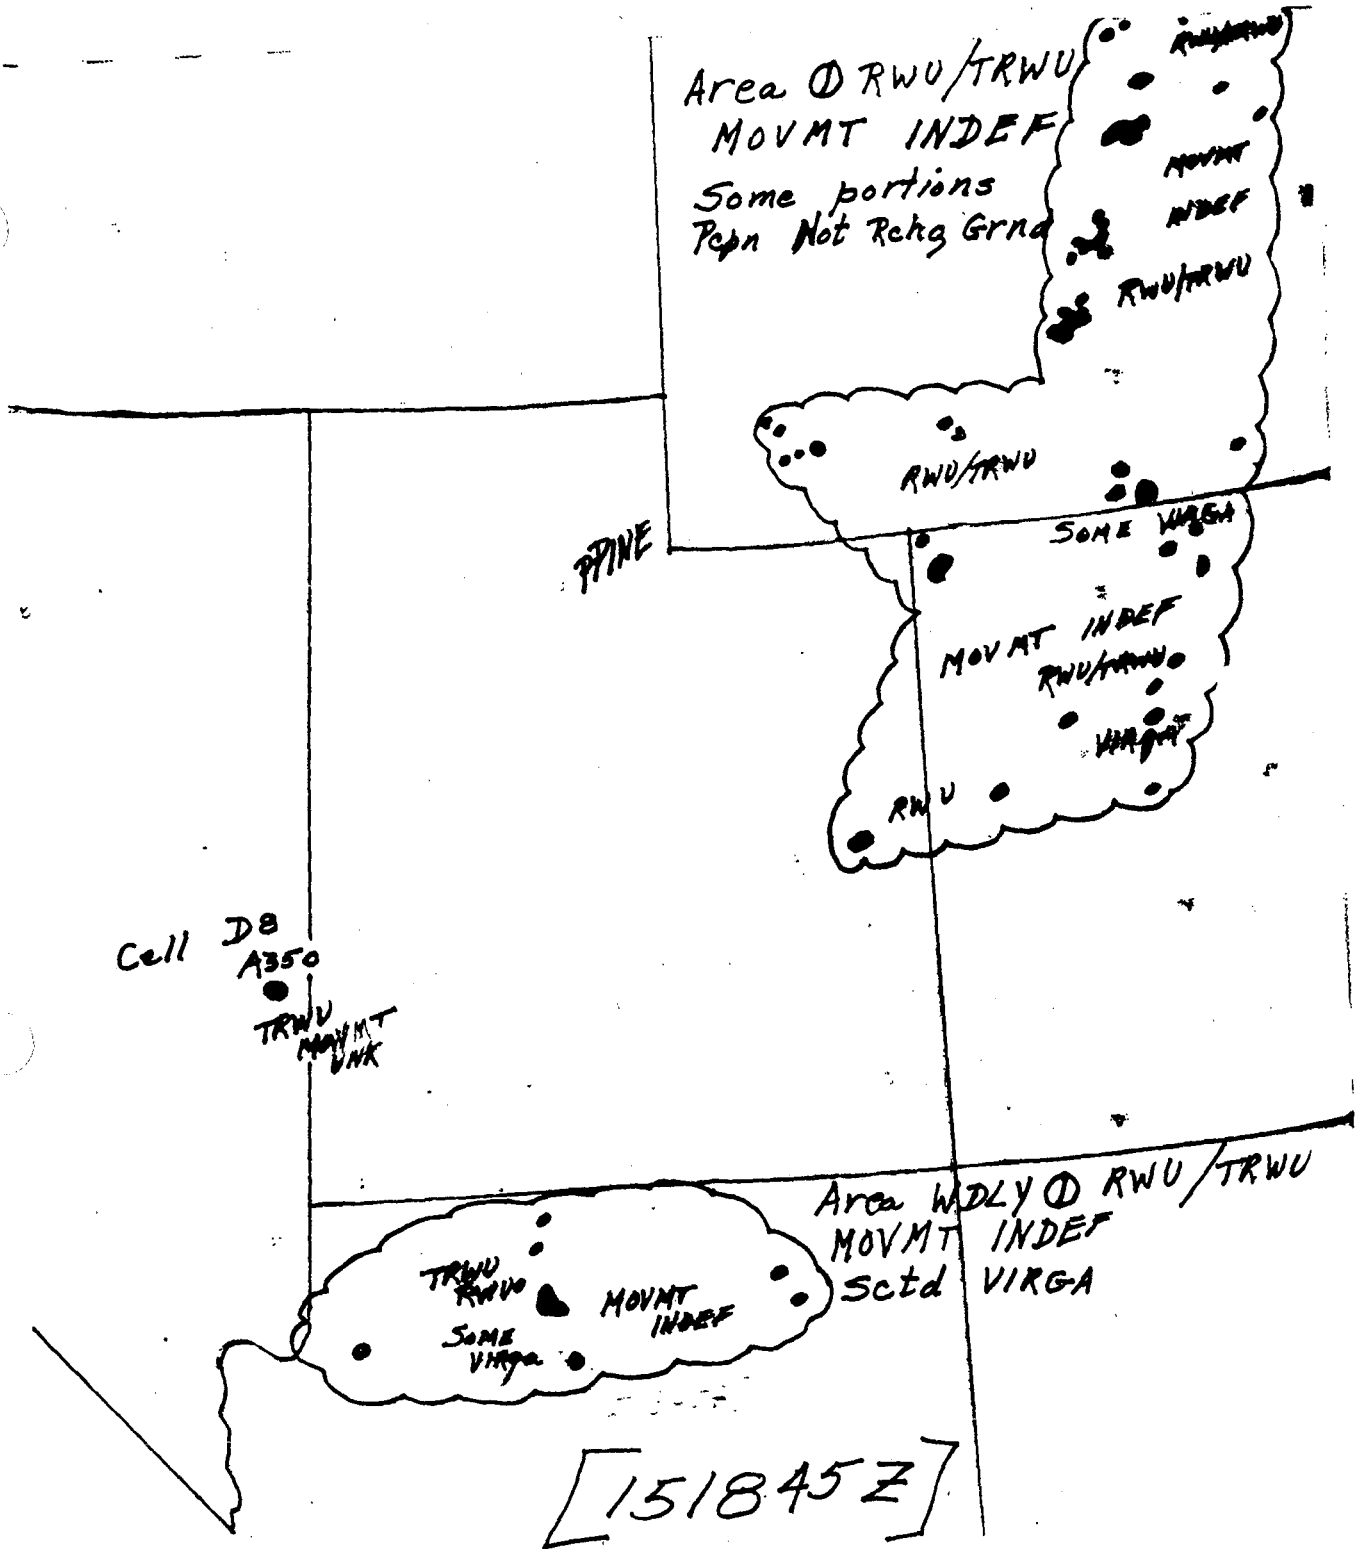 Area ⦶ RWU/TRWU
MOVMT INDEF
Some portions
Pcpn Not Rchg Grnd
RWU/TRWU
MOVMT
INDEF
RWU/TRWU
RWU/TRWU
PPINE
SOME VIRGA
MOVMT INDEF
RWU/TRWU
VIRGA
RWU
Cell D8
A350
TRWU
MOVMT
UNK
Area WDLY ⦶ RWU/TRWU
MOVMT INDEF
Sctd VIRGA
TRWU
RWU
MOVMT
INDEF
SOME
VIRga
[151845Z]